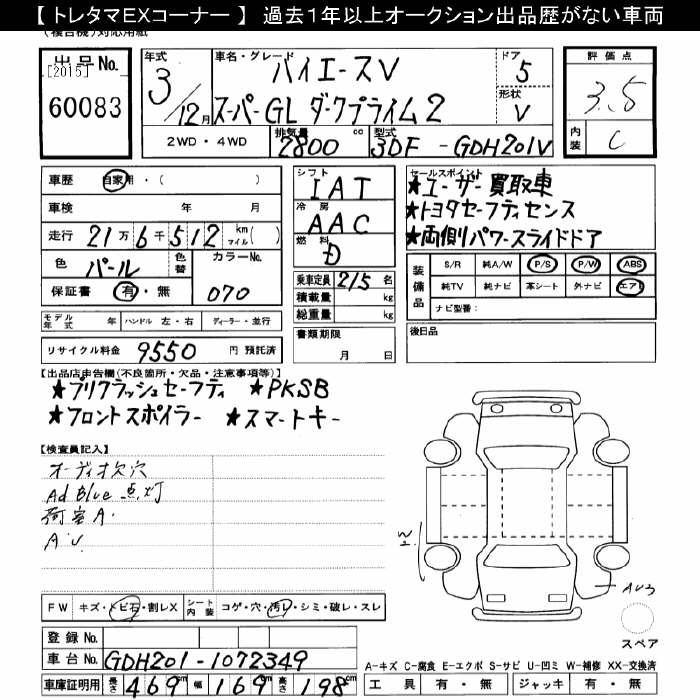 【 トレタマEXコーナー 】 過去１年以上オークション出品歴がない車両
(複合機)対応用紙
出品No.
[2015]
60083
年式
3/12月
車名・グレード
ハイエースV
スーパーGL ダークプライム2
ドア
5
形状
V
評価点
3.5
内装
C
2WD・4WD
排気量
2800 cc
型式
3DF - GDH201V
車歴 自家用・( )
車検 年 月
走行 21万6千512 km マイル( )
色 パール
色替
カラーNo.
070
保証書 有・無
シフト
IAT
冷房
AAC
燃料
D
乗車定員 2/5 名
積載量 kg
総重量 kg
セールスポイント
★ユーザー買取車
★トヨタセーフティセンス
★両側パワースライドドア
装備品
S/R 純A/W P/S P/W ABS
純TV 純ナビ 革シート 外ナビ エアB
ナビ型番：
モデル年式 年 ハンドル 左・右 ディーラー・並行
リサイクル料金 9550 円 預託済
書類期限
月 日
後日品
【出品店申告欄(不良箇所・欠品・注意事項等)】
★プリクラッシュセーフティ ★PKSB
★フロントスポイラー ★スマートキー
【検査員記入】
オーディオ欠穴
Ad Blue 点灯
荷室A.
A.U.
AU3
スペア
FW キズ・トビ石・割レX
シート内装 コゲ・穴・汚レ・シミ・破レ・スレ
登録 No.
車台 No. GDH201-1072349
車庫証明用 長さ 469cm 幅 169cm 高さ 198cm
A-キズ C-腐食 E-エクボ S-サビ U-凹ミ W-補修 XX-交換済
工具 有・無 ジャッキ 有・無